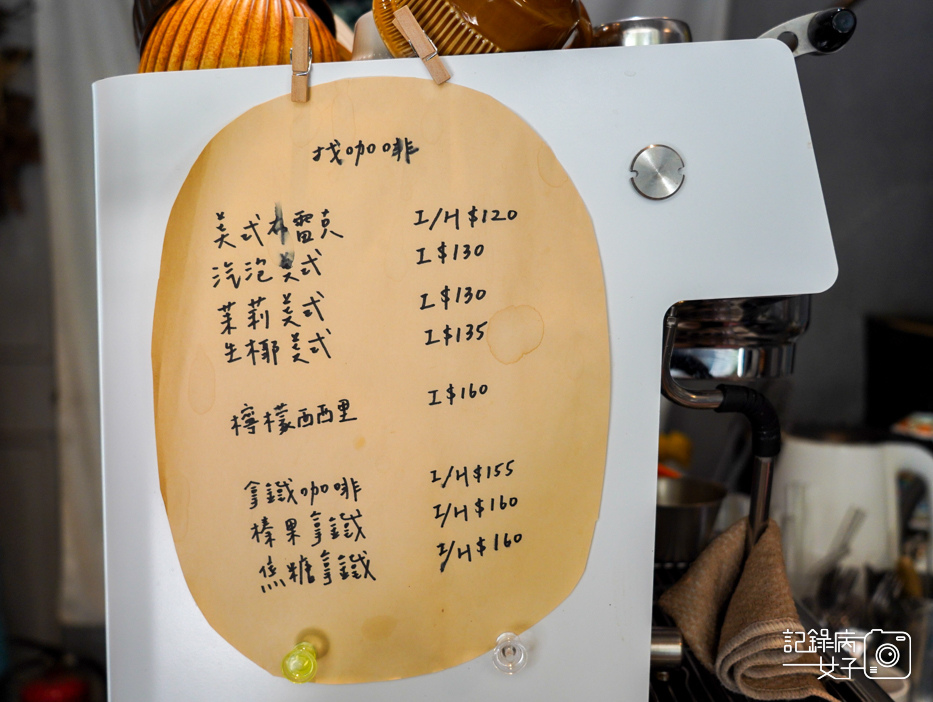 找咖啡
美式布雷克 I/H $120
汽泡美式 I $130
茉莉美式 I $130
生椰美式 I $135
檸檬西西里 I $160
拿鐵咖啡 I/H $155
榛果拿鐵 I/H $160
焦糖拿鐵 I/H $160
記錄病
女子